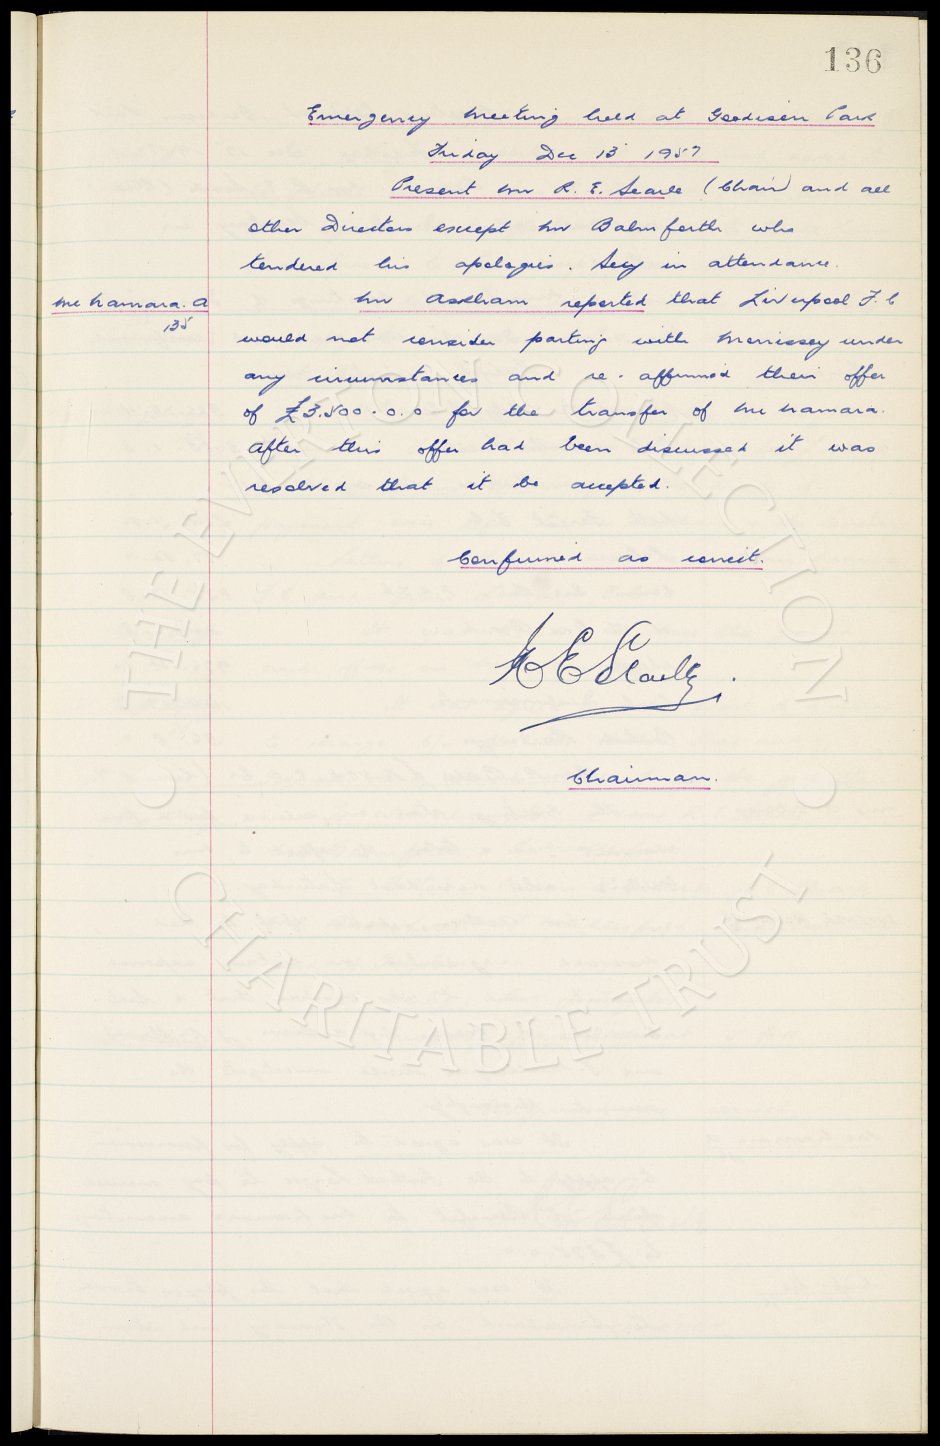 136
Emergency Meeting held at Goodison Park
Friday Dec 13 1957
Present Mr R. E. Searle (Chair) and all
other Directors except Mr Balmforth who
tendered his apologies. Secy in attendance.
McNamara. A
135
Mr Askham reported that Liverpool F.C
would not consider parting with Morrissey under
any circumstances and re-affirmed their offer
of £3.500.0.0 for the transfer of McNamara.
After this offer had been discussed it was
resolved that it be accepted.
Confirmed as correct.
R E Searle.
Chairman.
THE EVERTON COLLECTION
CHARITABLE TRUST